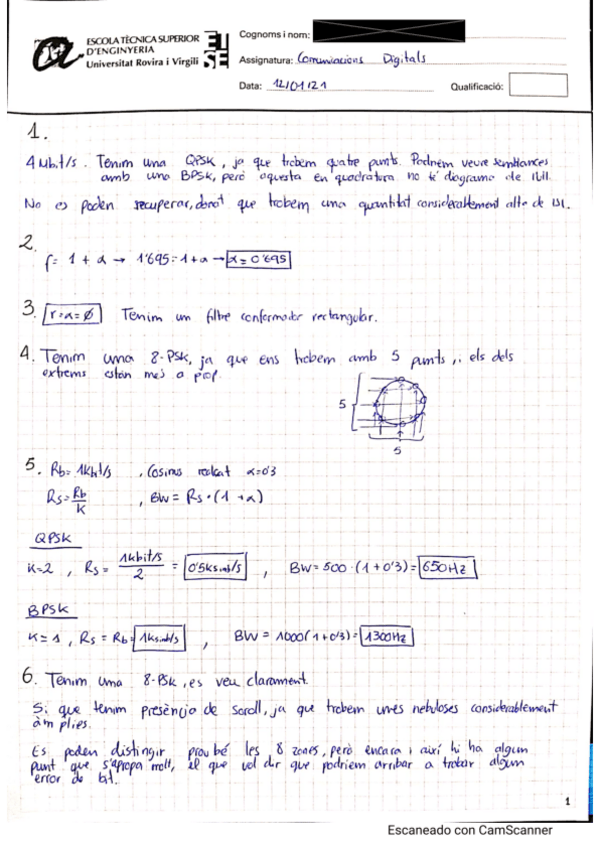 ESCOLA TÈCNICA SUPERIOR
D'ENGINYERIA
Universitat Rovira i Virgili
ETSE
Cognoms i nom:
Assignatura: Comunicacions Digitals
Data: 12/01/21
Qualificació:
1.
4 Mbit/s. Tenim una QPSK, ja que trobem quatre punts. Podríem veure semblances
amb una BPSK, però aquesta en quadratura no té diagrama de l'ull.
No es poden recuperar, donat que trobem una quantitat considerablement alta de ISI.
2.
f = 1 + α → 1'695 = 1 + α → α = 0'695
3. r=α=ø Tenim un filtre conformador rectangular.
4. Tenim una 8-PSK, ja que ens trobem amb 5 punts, i els dels
extrems estan més a prop.
5
5
5. Rb = 1kbit/s , Cosinus α=0'3
Rs = Rb/K , BW = Rs·(1+α)
QPSK
K=2 , Rs = 1kbit/s / 2 = 0'5ksimb/s , BW = 500·(1+0'3) = 650Hz
BPSK
K=1 , Rs = Rb = 1ksimb/s , BW = 1000(1+0'3) = 1300Hz
6. Tenim una 8-PSK, es veu clarament.
Si que tenim presència de soroll, ja que trobem unes nebuloses considerablement
àmplies.
Es poden distingir prou bé les 8 zones, però encara i així hi ha algun
punt que s'apropa molt, el que vol dir que podríem arribar a trobar algun
error de bit.
1
Escaneado con CamScanner